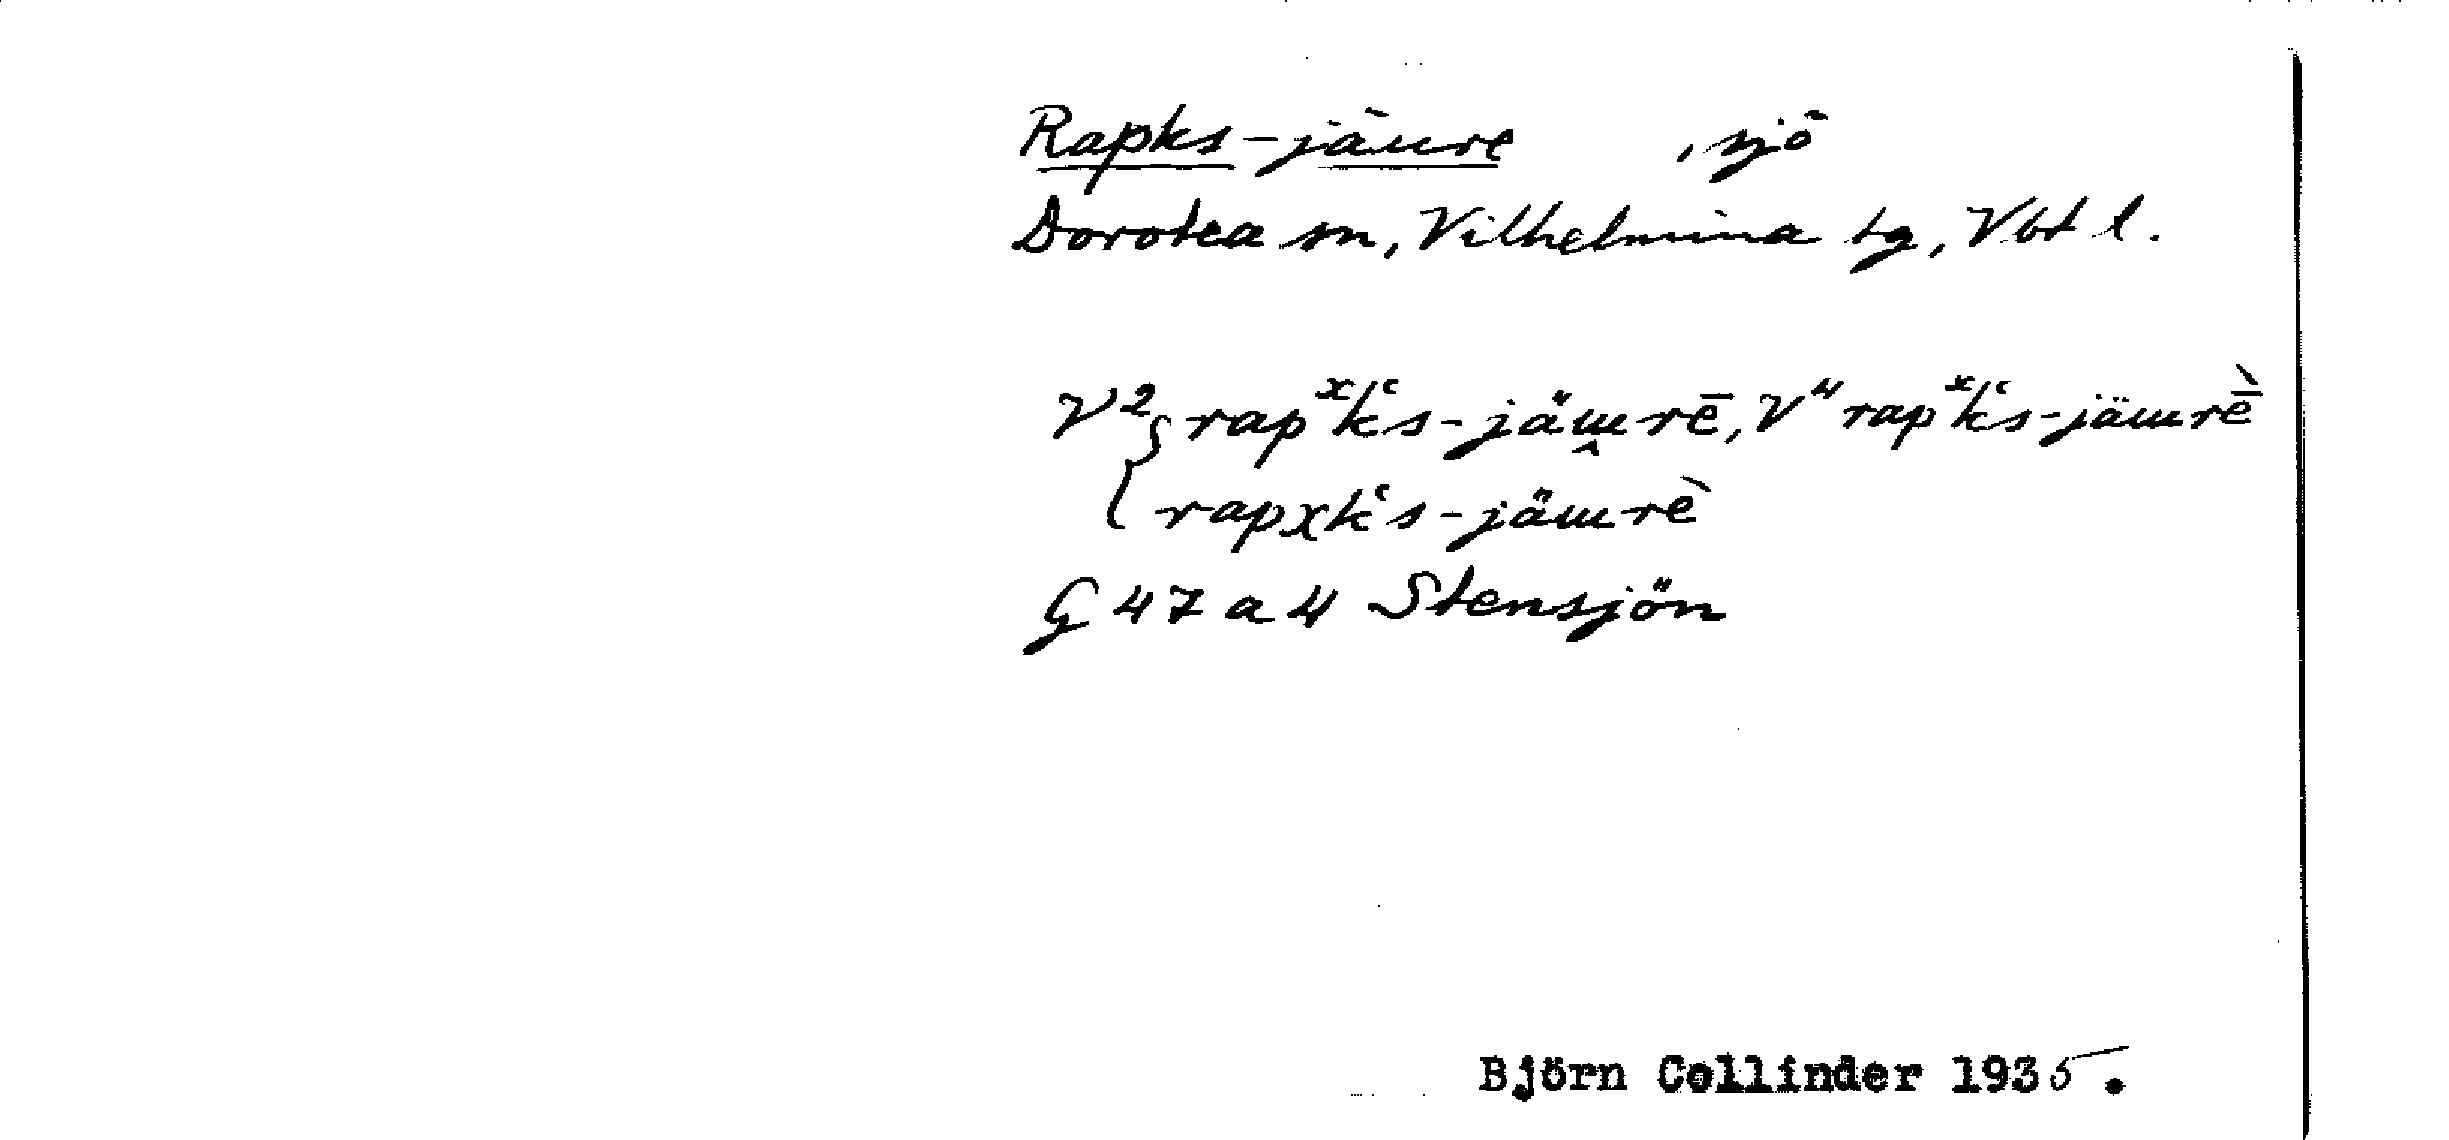 Rapks-jäure , sjö
Dorotea sn, Vilhelmina tg, Vbt l.
V² { rapˣk‘s-jäɯ̭rē, V⁴ rapˣk‘s-jäɯrḕ
rapxk‘s-jäɯrè
G 47 a 4 Stensjön
Björn Collinder 1935.